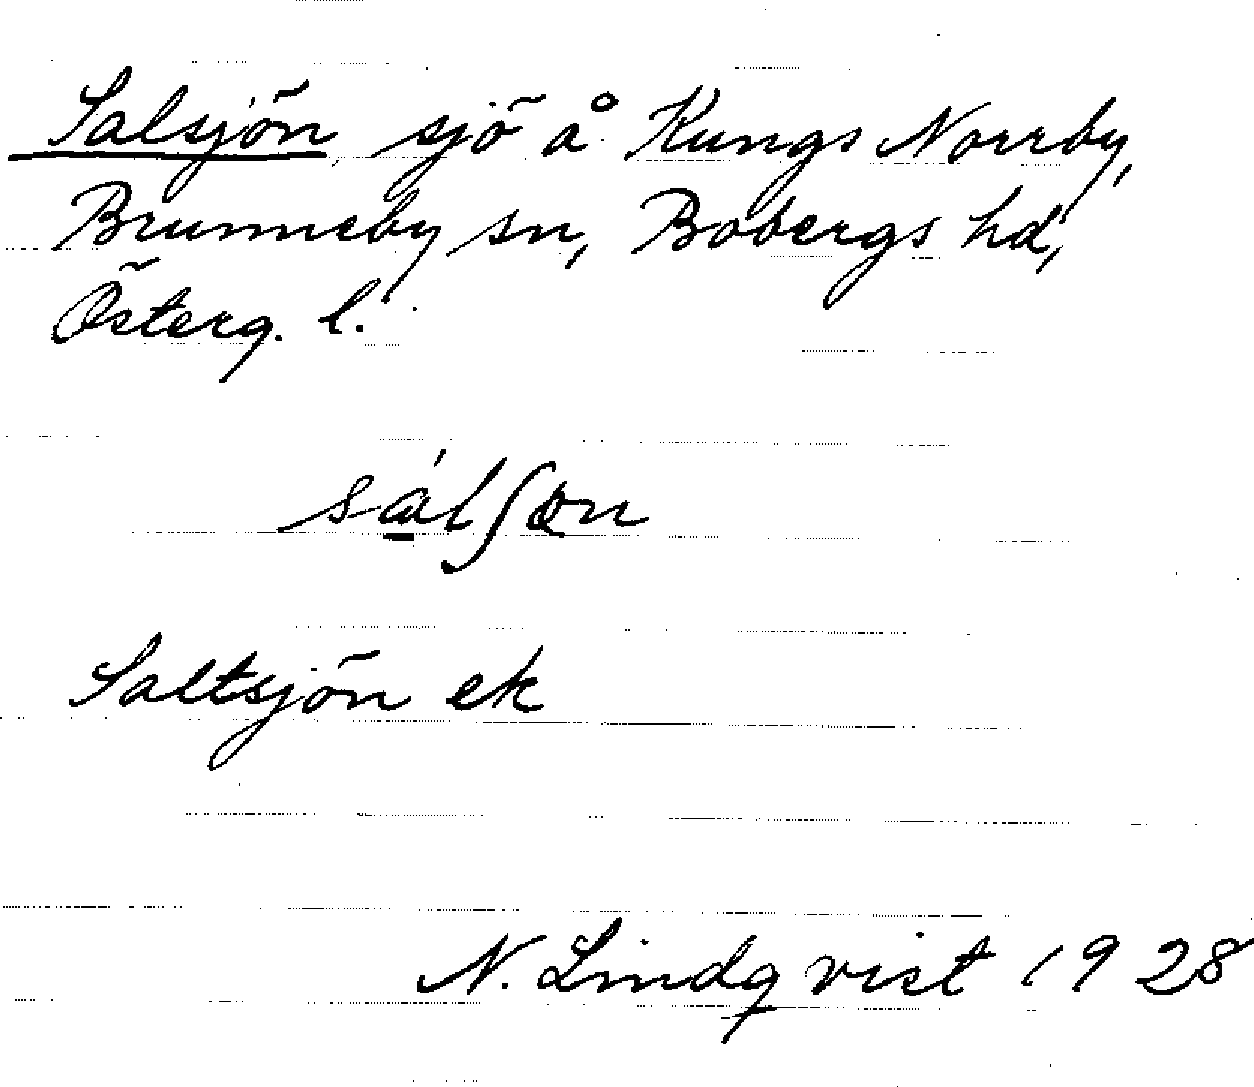 Salsjön sjö å Kungs Norrby,
Brunneby sn, Bobergs hd,
Österg. l.
Saltsjön ek
N. Lindqvist 1928